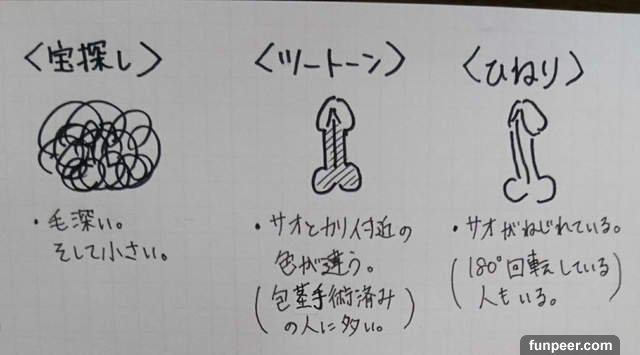 〈宝探し〉
・毛深い。
そして小さい。
〈ツートーン〉
・サオとカリ付近の
色が違う。
(包茎手術済み
の人に多い。)
〈ひねり〉
・サオがねじれている。
(180°回転している
人もいる。)
funpeer.com